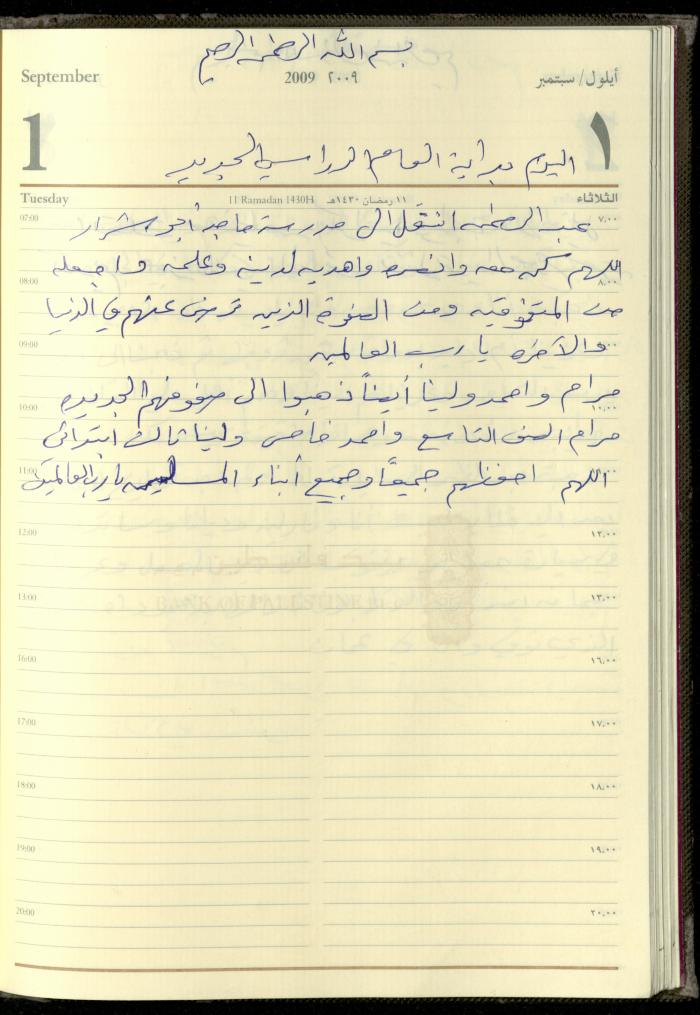 بسم الله الرحمن الرحيم
September 2009 ٢٠٠٩ أيلول/ سبتمبر
1 ١
اليوم بداية العام الدراسي الجديد
Tuesday 11 Ramadan 1430H ١١ رمضان ١٤٣٠هـ الثلاثاء
07:00 ٧,٠٠
عبد الرحمن انتقل الى مدرسة ماجد أبو شرار
اللهم كن معه وانصره واهديه لدينه وعلمه واجعله
08:00 ٨,٠٠
من المتفوقين ومن الصفوة الذين ترضى عنهم في الدنيا
09:00
والآخره يا رب العالمين
مرام واحمد ولينا أيضاً ذهبوا الى صفوفهم الجديده
10:00 ١٠,٠٠
مرام الصف التاسع واحمد خامس ولينا ثالث ابتدائي
11:00
اللهم احفظهم جميعاً وجميع أبناء المسلمين يا رب العالمين
12:00 ١٢,٠٠
13:00 ١٣,٠٠
BANK OF PALESTINE
16:00 ١٦,٠٠
17:00 ١٧,٠٠
18:00 ١٨,٠٠
19:00 ١٩,٠٠
20:00 ٢٠,٠٠